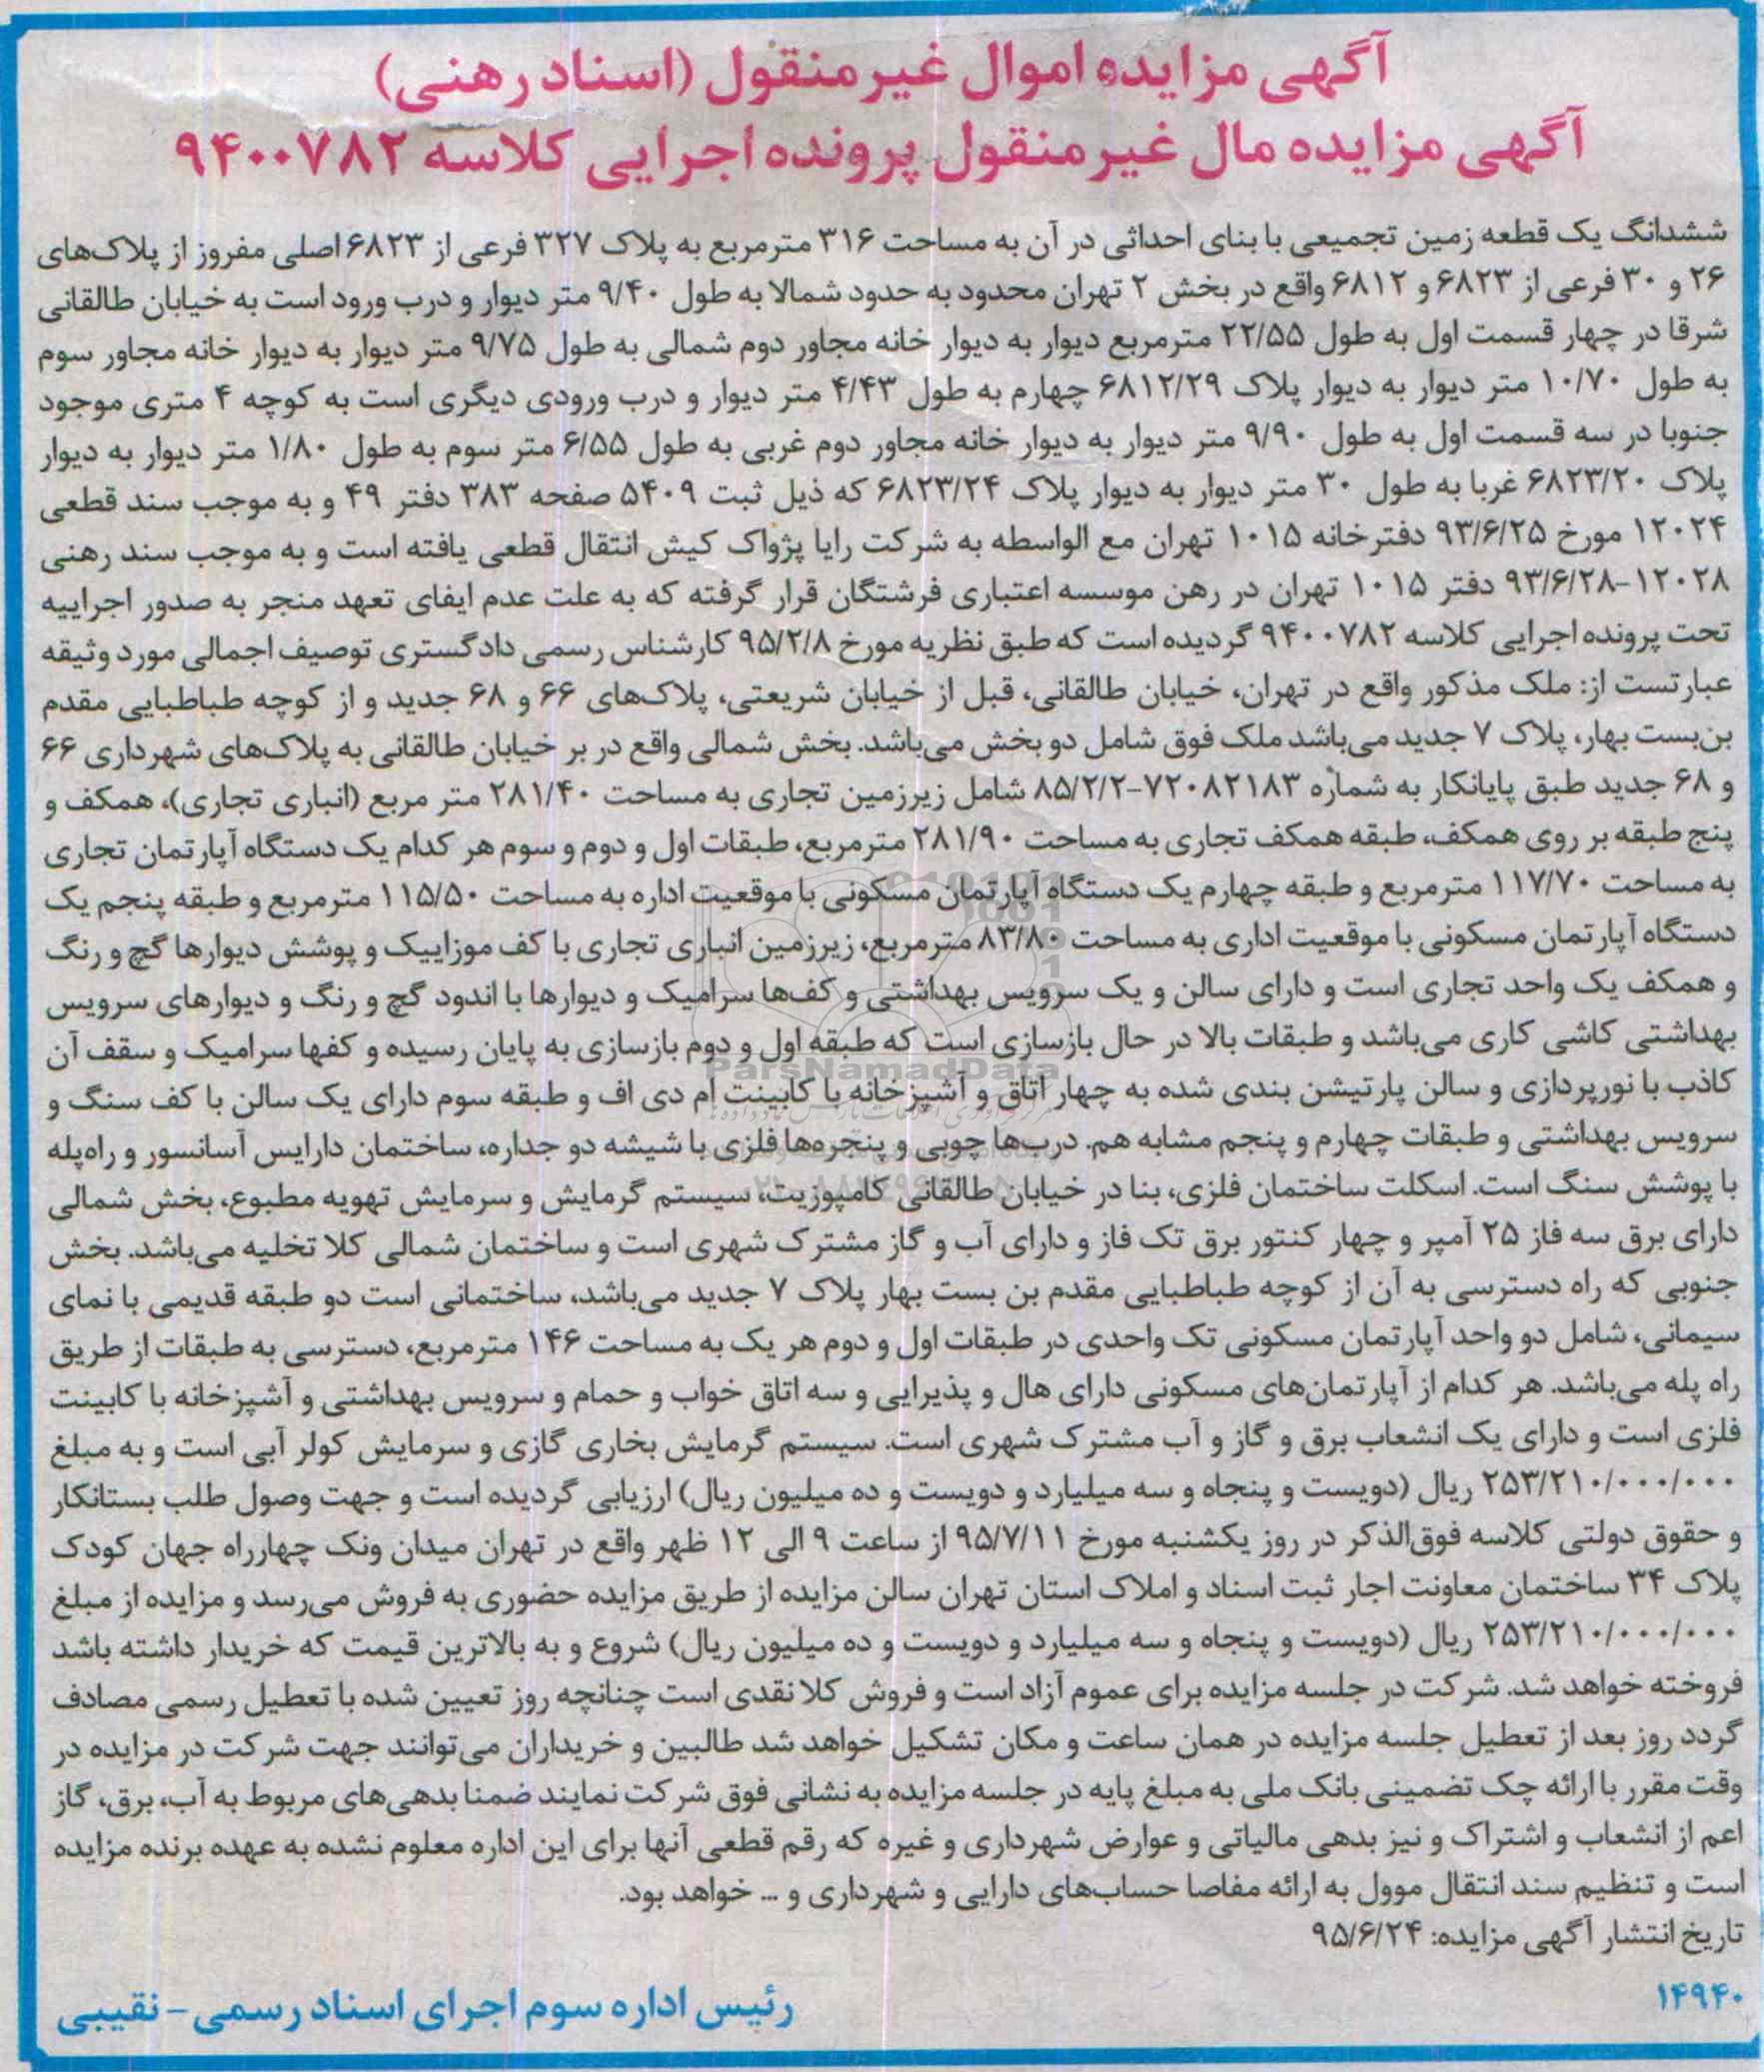 آگهی مزایده اموال غیرمنقول (اسناد رهنی)
آگهی مزایده مال غیرمنقول پرونده اجرایی کلاسه ۹۴۰۰۷۸۲
ششدانگ یک قطعه زمین تجمیعی با بنای احداثی در آن به مساحت ۳۱۶ مترمربع به پلاک ۳۲۷ فرعی از ۶۸۲۳ اصلی مفروز از پلاک‌های
۲۶ و ۳۰ فرعی از ۶۸۲۳ و ۶۸۱۲ واقع در بخش ۲ تهران محدود به حدود شمالا به طول ۹/۴۰ متر دیوار و درب ورود است به خیابان طالقانی
شرقا در چهار قسمت اول به طول ۲۲/۵۵ مترمربع دیوار به دیوار خانه مجاور دوم شمالی به طول ۹/۷۵ متر دیوار به دیوار خانه مجاور سوم
به طول ۱۰/۷۰ متر دیوار به دیوار پلاک ۶۸۱۲/۲۹ چهارم به طول ۴/۴۳ متر دیوار و درب ورودی دیگری است به کوچه ۴ متری موجود
جنوبا در سه قسمت اول به طول ۹/۹۰ متر دیوار به دیوار خانه مجاور دوم غربی به طول ۶/۵۵ متر سوم به طول ۱/۸۰ متر دیوار به دیوار
پلاک ۶۸۲۳/۲۰ غربا به طول ۳۰ متر دیوار به دیوار پلاک ۶۸۲۳/۲۴ که ذیل ثبت ۵۴۰۹ صفحه ۳۸۳ دفتر ۴۹ و به موجب سند قطعی
۱۲۰۲۴ مورخ ۹۳/۶/۲۵ دفترخانه ۱۰۱۵ تهران مع الواسطه به شرکت رایا پژواک کیش انتقال قطعی یافته است و به موجب سند رهنی
۱۲۰۲۸-۹۳/۶/۲۸ دفتر ۱۰۱۵ تهران در رهن موسسه اعتباری فرشتگان قرار گرفته که به علت عدم ایفای تعهد منجر به صدور اجراییه
تحت پرونده اجرایی کلاسه ۹۴۰۰۷۸۲ گردیده است که طبق نظریه مورخ ۹۵/۲/۸ کارشناس رسمی دادگستری توصیف اجمالی مورد وثیقه
عبارتست از: ملک مذکور واقع در تهران، خیابان طالقانی، قبل از خیابان شریعتی، پلاک‌های ۶۶ و ۶۸ جدید و از کوچه طباطبایی مقدم
بن‌بست بهار، پلاک ۷ جدید می‌باشد ملک فوق شامل دو بخش می‌باشد. بخش شمالی واقع در بر خیابان طالقانی به پلاک‌های شهرداری ۶۶
و ۶۸ جدید طبق پایانکار به شماره ۷۲۰۸۲۱۸۳-۸۵/۲/۲ شامل زیرزمین تجاری به مساحت ۲۸۱/۴۰ متر مربع (انباری تجاری)، همکف و
پنج طبقه بر روی همکف، طبقه همکف تجاری به مساحت ۲۸۱/۹۰ مترمربع، طبقات اول و دوم و سوم هر کدام یک دستگاه آپارتمان تجاری
به مساحت ۱۱۷/۷۰ مترمربع و طبقه چهارم یک دستگاه آپارتمان مسکونی با موقعیت اداره به مساحت ۱۱۵/۵۰ مترمربع و طبقه پنجم یک
دستگاه آپارتمان مسکونی با موقعیت اداری به مساحت ۸۳/۸۰ مترمربع، زیرزمین انباری تجاری با کف موزاییک و پوشش دیوارها گچ و رنگ
و همکف یک واحد تجاری است و دارای سالن و یک سرویس بهداشتی و کف‌ها سرامیک و دیوارها با اندود گچ و رنگ و دیوارهای سرویس
بهداشتی کاشی کاری می‌باشد و طبقات بالا در حال بازسازی است که طبقه اول و دوم بازسازی به پایان رسیده و کفها سرامیک و سقف آن
ParsNamadData
کاذب با نورپردازی و سالن پارتیشن بندی شده به چهار اتاق و آشپزخانه با کابینت ام دی اف و طبقه سوم دارای یک سالن با کف سنگ و
سرویس بهداشتی و طبقات چهارم و پنجم مشابه هم. درب‌ها چوبی و پنجره‌ها فلزی با شیشه دو جداره، ساختمان دارایس آسانسور و راه‌پله
با پوشش سنگ است. اسکلت ساختمان فلزی، بنا در خیابان طالقانی کامپوزیت، سیستم گرمایش و سرمایش تهویه مطبوع، بخش شمالی
دارای برق سه فاز ۲۵ آمپر و چهار کنتور برق تک فاز و دارای آب و گاز مشترک شهری است و ساختمان شمالی کلا تخلیه می‌باشد. بخش
جنوبی که راه دسترسی به آن از کوچه طباطبایی مقدم بن بست بهار پلاک ۷ جدید می‌باشد، ساختمانی است دو طبقه قدیمی با نمای
سیمانی، شامل دو واحد آپارتمان مسکونی تک واحدی در طبقات اول و دوم هر یک به مساحت ۱۴۶ مترمربع، دسترسی به طبقات از طریق
راه پله می‌باشد. هر کدام از آپارتمان‌های مسکونی دارای هال و پذیرایی و سه اتاق خواب و حمام و سرویس بهداشتی و آشپزخانه با کابینت
فلزی است و دارای یک انشعاب برق و گاز و آب مشترک شهری است. سیستم گرمایش بخاری گازی و سرمایش کولر آبی است و به مبلغ
۲۵۳/۲۱۰/۰۰۰/۰۰۰ ریال (دویست و پنجاه و سه میلیارد و دویست و ده میلیون ریال) ارزیابی گردیده است و جهت وصول طلب بستانکار
و حقوق دولتی کلاسه فوق‌الذکر در روز یکشنبه مورخ ۹۵/۷/۱۱ از ساعت ۹ الی ۱۲ ظهر واقع در تهران میدان ونک چهارراه جهان کودک
پلاک ۳۴ ساختمان معاونت اجار ثبت اسناد و املاک استان تهران سالن مزایده از طریق مزایده حضوری به فروش می‌رسد و مزایده از مبلغ
۲۵۳/۲۱۰/۰۰۰/۰۰۰ ریال (دویست و پنجاه و سه میلیارد و دویست و ده میلیون ریال) شروع و به بالاترین قیمت که خریدار داشته باشد
فروخته خواهد شد. شرکت در جلسه مزایده برای عموم آزاد است و فروش کلا نقدی است چنانچه روز تعیین شده با تعطیل رسمی مصادف
گردد روز بعد از تعطیل جلسه مزایده در همان ساعت و مکان تشکیل خواهد شد طالبین و خریداران می‌توانند جهت شرکت در مزایده در
وقت مقرر با ارائه چک تضمینی بانک ملی به مبلغ پایه در جلسه مزایده به نشانی فوق شرکت نمایند ضمنا بدهی‌های مربوط به آب، برق، گاز
اعم از انشعاب و اشتراک و نیز بدهی مالیاتی و عوارض شهرداری و غیره که رقم قطعی آنها برای این اداره معلوم نشده به عهده برنده مزایده
است و تنظیم سند انتقال موول به ارائه مفاصا حساب‌های دارایی و شهرداری و ... خواهد بود.
تاریخ انتشار آگهی مزایده: ۹۵/۶/۲۴
۱۴۹۴۰
رئیس اداره سوم اجرای اسناد رسمی - نقیبی